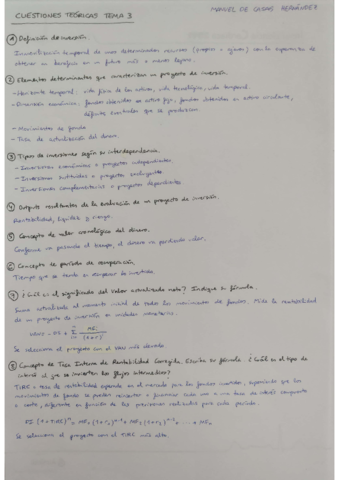 CUESTIONES TEÓRICAS TEMA 3
MANUEL DE CASAS HERNÁNDEZ
① Definición de inversión.
Inmovilización temporal de unos determinados recursos (propios o ajenos) con la esperanza de
obtener un beneficio en un futuro más o menos lejano.
② Elementos determinantes que caracterizan un proyecto de inversión.
- Horizonte temporal: vida física de los activos, vida tecnológica, vida temporal
- Dimensión económica: fondos absorbidos en activo fijo, fondos absorbidos en activo circulante,
déficits eventuales que se produzcan
- Movimientos de fondos
- Tasa de actualización del dinero.
③ Tipos de inversiones según su interdependencia.
- Inversiones económicas o proyectos independientes.
- Inversiones sustitutivas o proyectos excluyentes
- Inversiones complementarias o proyectos dependientes
④ Outputs resultantes de la evaluación de un proyecto de inversión.
Rentabilidad, liquidez y riesgo.
⑤ Concepto de valor cronológico del dinero.
Conforme va pasando el tiempo, el dinero va perdiendo valor.
⑥ Concepto de período de recuperación.
Tiempo que se tarda en recuperar lo invertido
⑦ ¿Cuál es el significado del Valor actualizado neto? Indique su fórmula.
Suma actualizada al momento inicial de todos los movimientos de fondos. Mide la rentabilidad
de un proyecto de inversión en unidades monetarias.
Se selecciona el proyecto con el VAN más elevado.
⑧ Concepto de Tasa Interna de Rentabilidad Corregida. Escriba su fórmula. ¿Cuál es el tipo de
interés al que se invierten los flujos intermedios?
TIRC = tasa de rentabilidad operada en el mercado para los fondos invertidos, suponiendo que los
movimientos de fondos se pueden reinvertir o financiar cada uno a una tasa de interés compuesto
o coste, diferente en función de las previsiones realizadas para cada período.
Se selecciona el proyecto con el TIRC más alto.